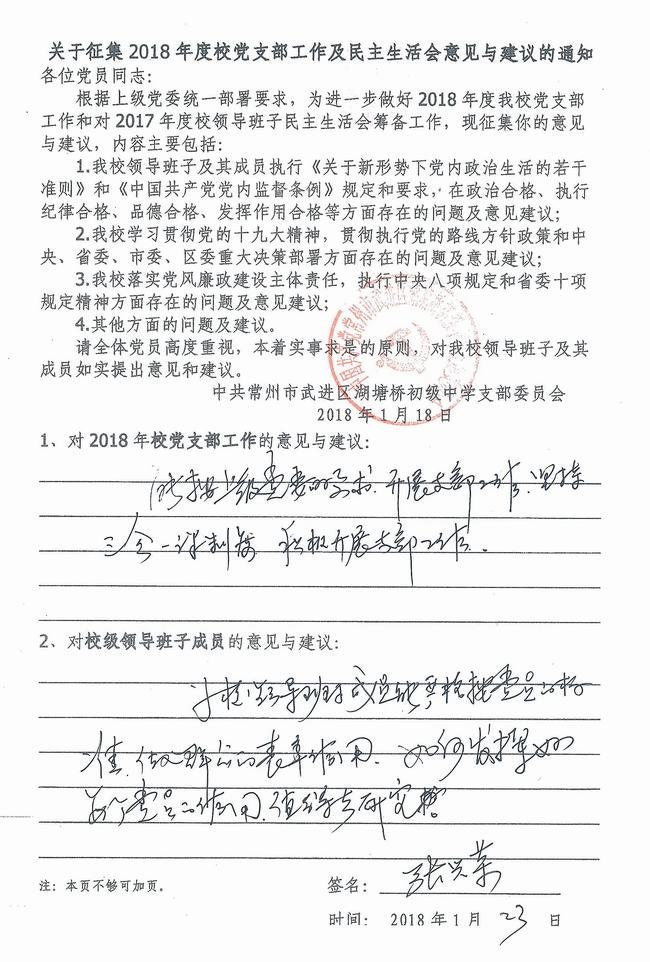 关于征集 2018 年度校党支部工作及民主生活会意见与建议的通知
各位党员同志：
根据上级党委统一部署要求，为进一步做好 2018 年度我校党支部
工作和对 2017 年度校领导班子民主生活会筹备工作，现征集你的意见
与建议，内容主要包括：
1.我校领导班子及其成员执行《关于新形势下党内政治生活的若干
准则》和《中国共产党党内监督条例》规定和要求，在政治合格、执行
纪律合格、品德合格、发挥作用合格等方面存在的问题及意见建议；
2.我校学习贯彻党的十九大精神，贯彻执行党的路线方针政策和中
央、省委、市委、区委重大决策部署方面存在的问题及意见建议；
3.我校落实党风廉政建设主体责任，执行中央八项规定和省委十项
规定精神方面存在的问题及意见建议；
4.其他方面的问题及建议。
请全体党员高度重视，本着实事求是的原则，对我校领导班子及其
成员如实提出意见和建议。
中共常州市武进区湖塘桥初级中学支部委员会
2018 年 1 月 18 日
1、对 2018 年校党支部工作的意见与建议：
能按上级党委的要求，开展支部工作，坚持
三会一课制度，积极开展支部工作。
2、对校级领导班子成员的意见与建议：
校级领导班子成员能严格按党员的标
准，做群众的表率作用，如何发挥好
每个党员的作用，值得去研究
注：本页不够可加页。
签名：张兴荣
时间： 2018 年 1 月 23 日